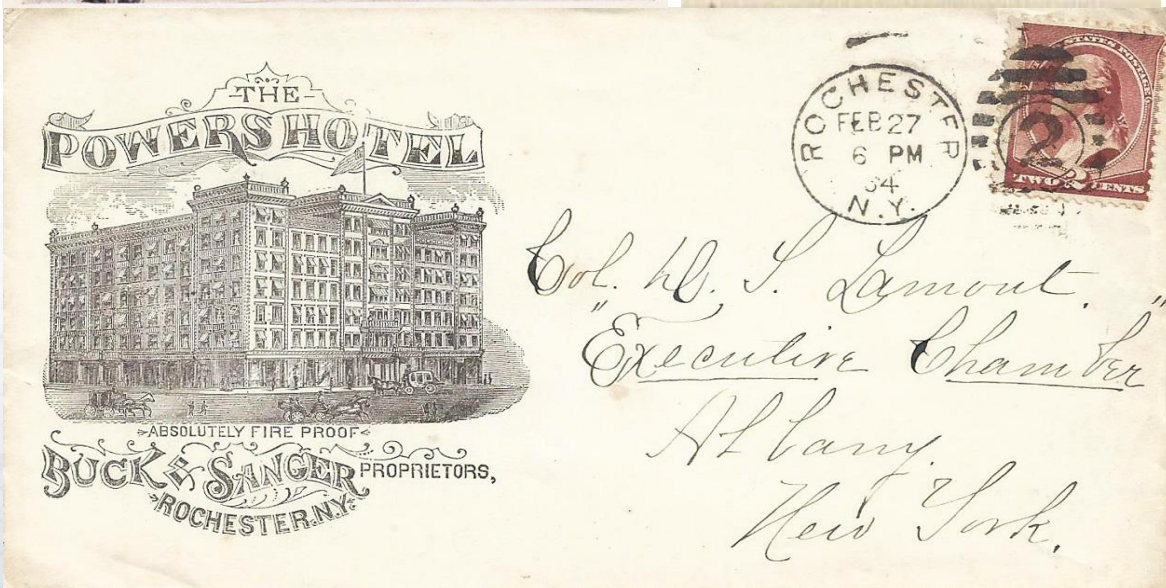 THE
POWERS HOTEL
ABSOLUTELY FIRE PROOF
BUCK & SANGER PROPRIETORS,
ROCHESTER, N.Y.
ROCHESTER
FEB 27
6 PM
84
N.Y.
2
TWO CENTS
UNITED STATES POSTAGE
Col. D. S. Lamont.
"Executive Chamber"
Albany.
New York.